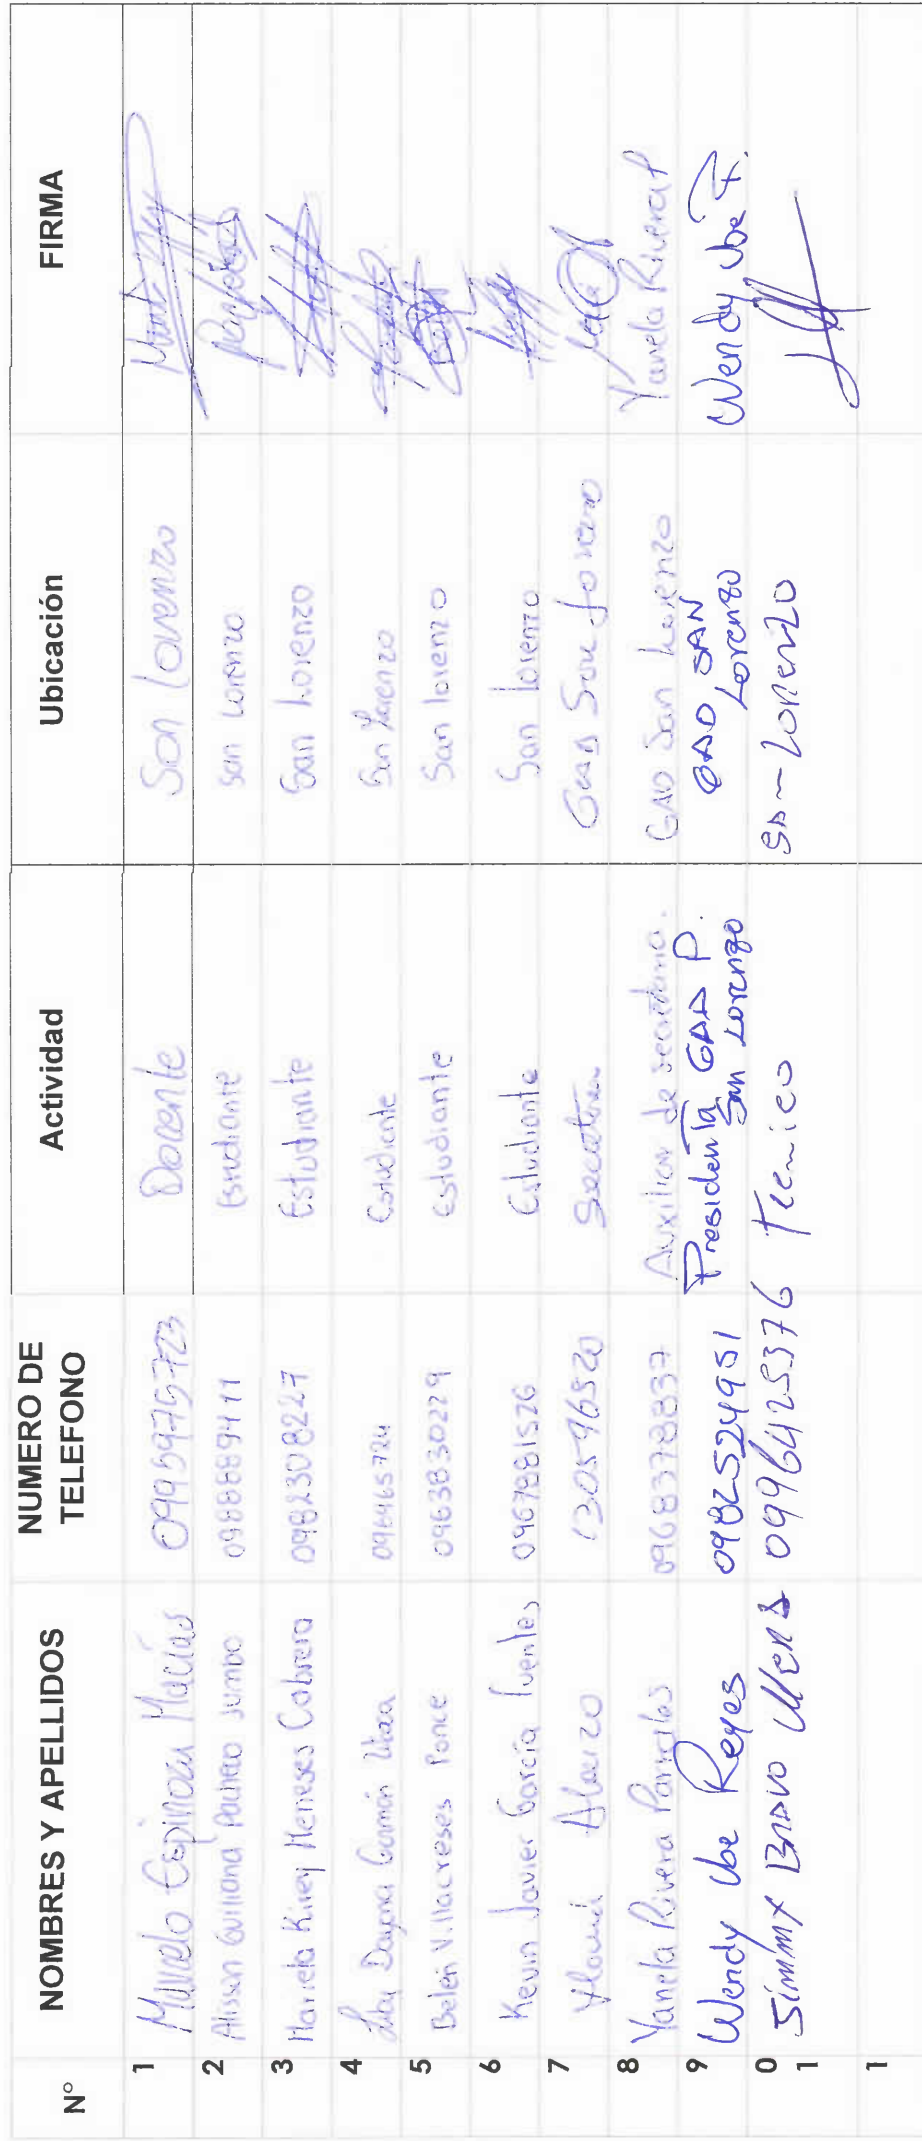 N° NOMBRES Y APELLIDOS NUMERO DE TELEFONO Actividad Ubicación FIRMA
1 Marcelo Espinoza Macías 0995975723 Docente San Lorenzo
2 Alisson Guiliana Pacheco Jumbo 0988889411 Estudiante San Lorenzo
3 Mariela Kirey Meneses Cabrera 0982308227 Estudiante San Lorenzo
4 Dayana Guamán 096465724 Estudiante San Lorenzo
5 Belén Villacreses Ponce 0963830229 Estudiante San Lorenzo
6 Kevin Javier García Fuentes 0967881526 Estudiante San Lorenzo
7 Alonzo 1305796520 Secretaria GAD San Lorenzo
8 Yanela Rivera 0968378837 Auxiliar de secretaria. GAD San Lorenzo Yanela Rivera P
9 Wendy Ube Reyes 0982524951 Presidenta GAD P. San Lorenzo GAD SAN Lorenzo Wendy Ube R.
10 Jimmy Bravo Mera 0996425376 Tecnico San Lorenzo
1